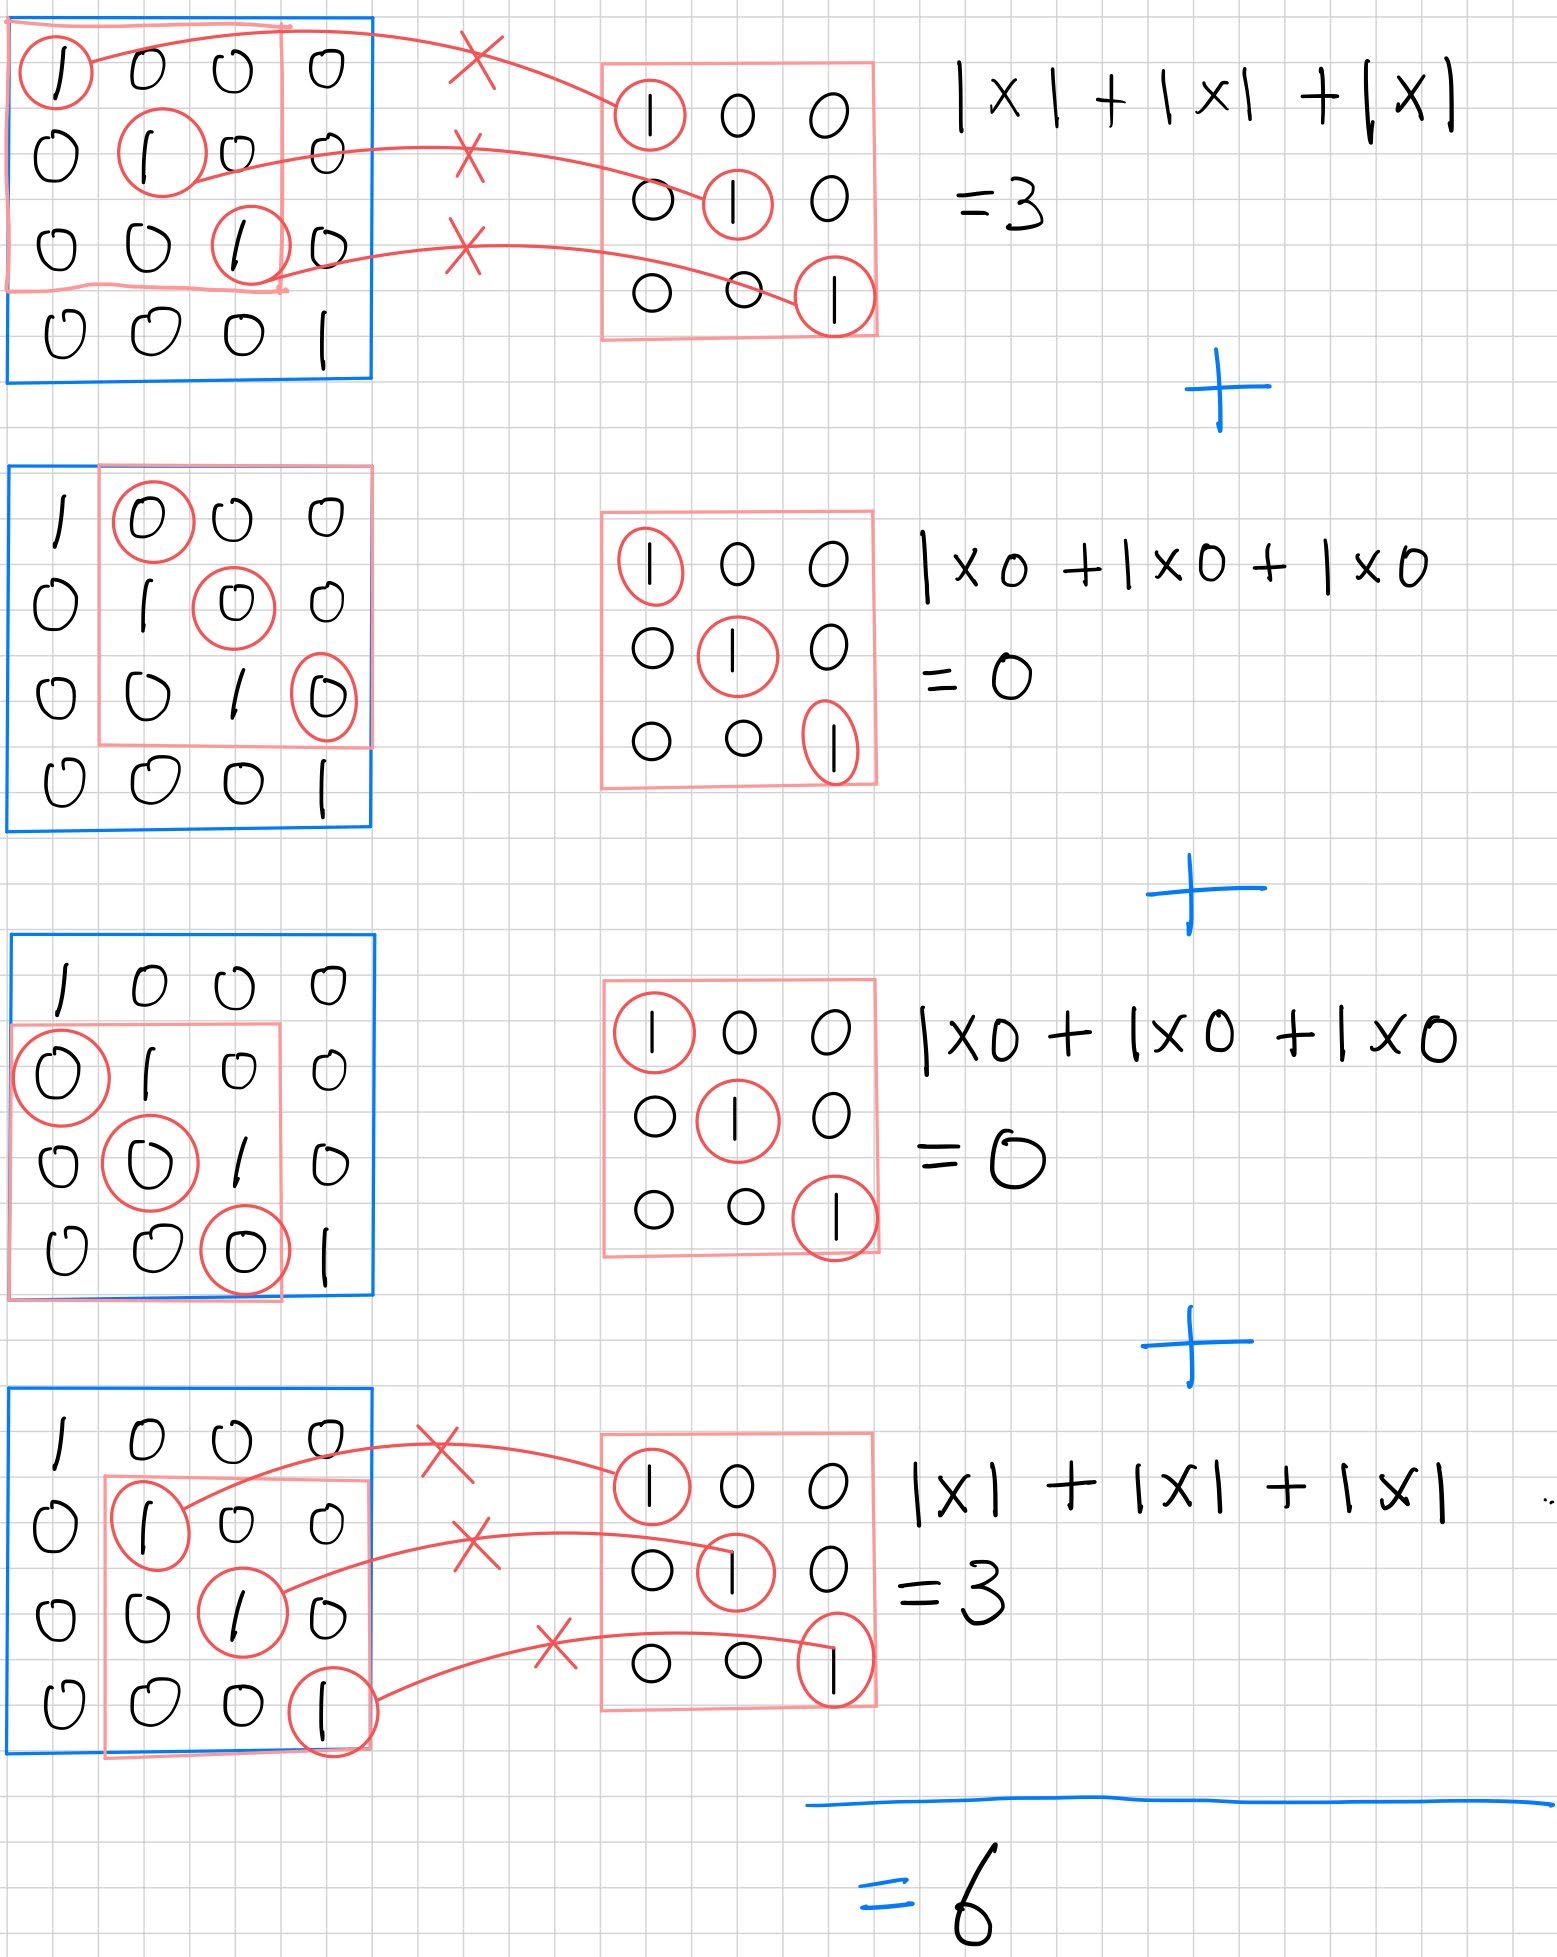 1 0 0 0
0 1 0 0
0 0 1 0
0 0 0 1
×
×
×
1 0 0
0 1 0
0 0 1
1×1 + 1×1 + 1×1
=3
+
1 0 0 0
0 1 0 0
0 0 1 0
0 0 0 1
1 0 0
0 1 0
0 0 1
1×0 + 1×0 + 1×0
= 0
+
1 0 0 0
0 1 0 0
0 0 1 0
0 0 0 1
1 0 0
0 1 0
0 0 1
1×0 + 1×0 + 1×0
= 0
+
1 0 0 0
0 1 0 0
0 0 1 0
0 0 0 1
×
×
×
1 0 0
0 1 0
0 0 1
1×1 + 1×1 + 1×1
=3
= 6